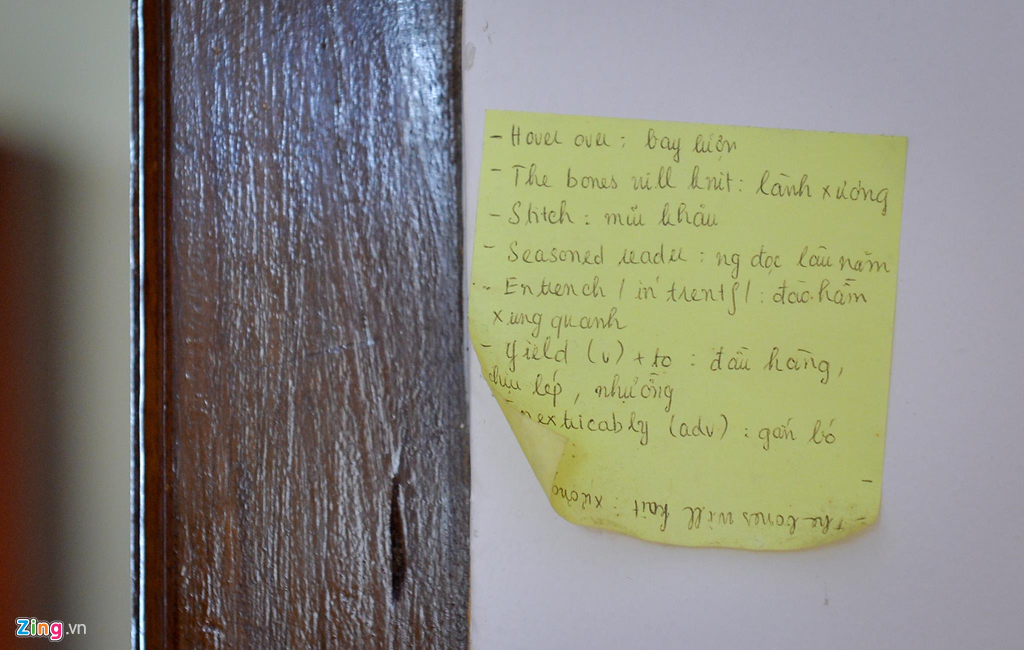 - Hover over : bay lượn
- The bones will knit : lành xương
- Stitch : mũi khâu
- Seasoned reader : ng đọc lâu năm
- Entrench / in'trentʃ / : đào hầm
xung quanh
- Yield (v) + to : đầu hàng,
chịu lép, nhượng
nextricably (adv) : gắn bó
-
- The bones will knit : xương
Zing.vn